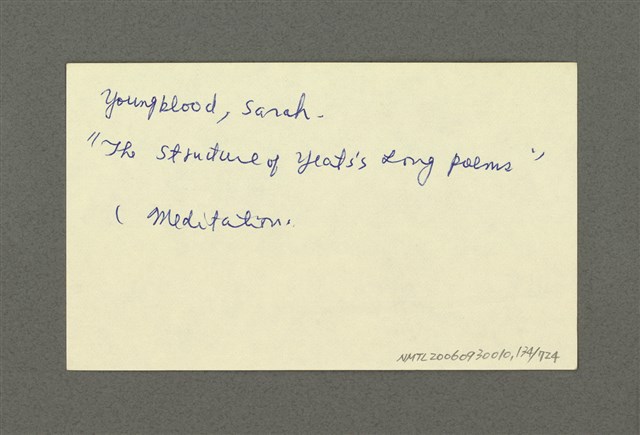 Youngblood, Sarah.
"The Structure of Yeats's Long poems"
( Meditation.
NMTL20060930010,174/724